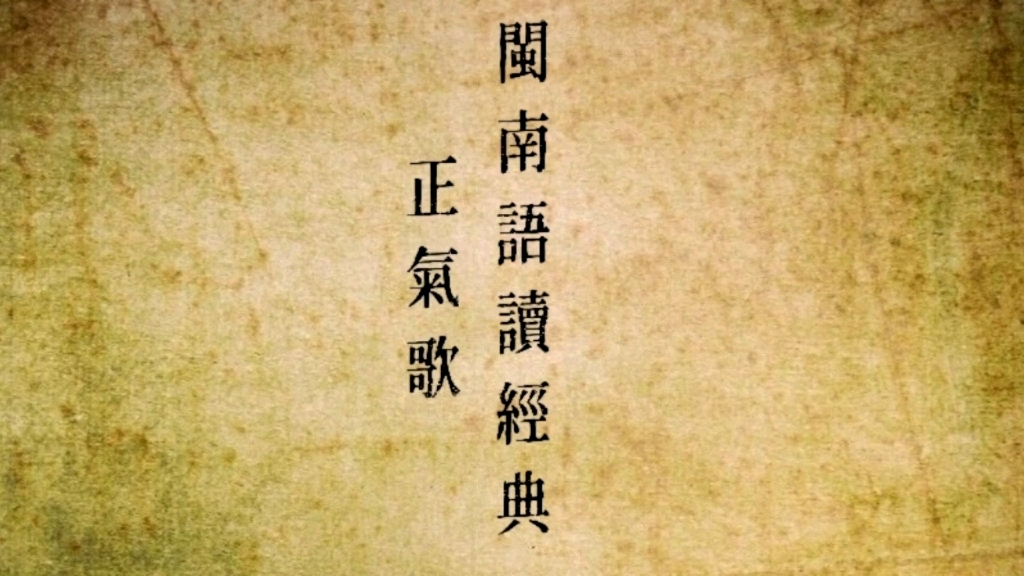 閩南語讀經典
正氣歌